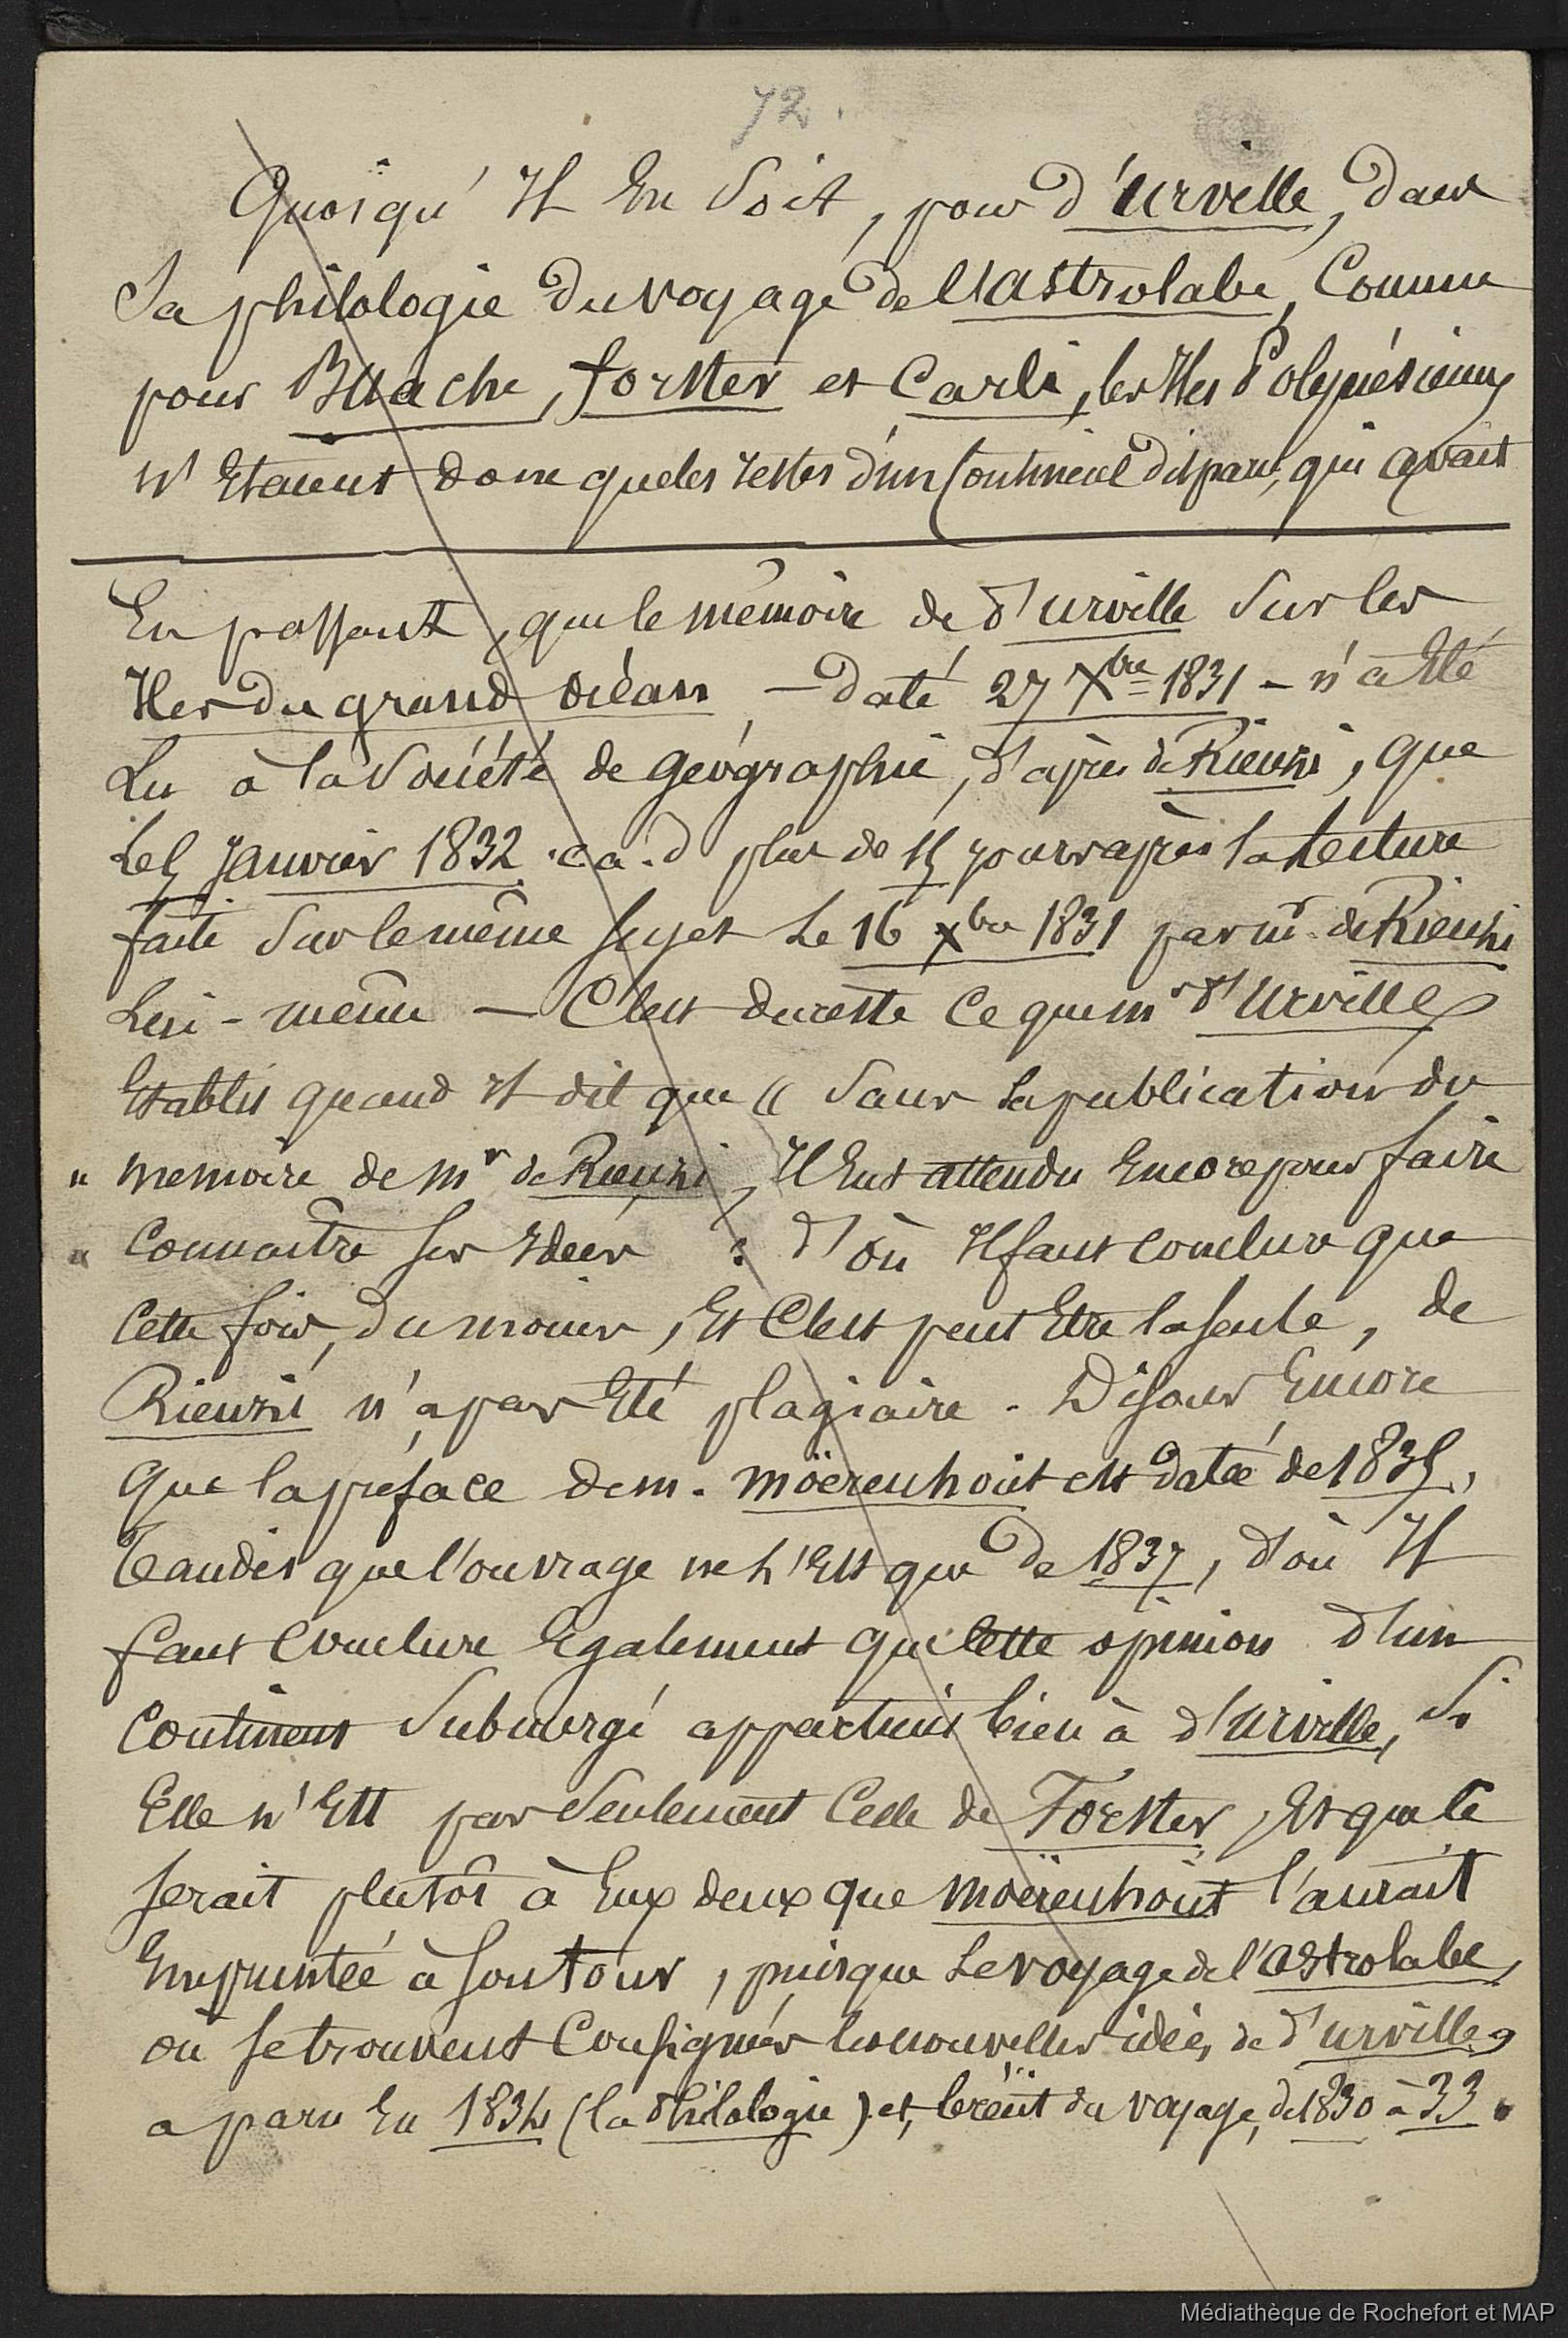 72.
Quoiqu' Il En Soit, pour d'Urville, dans
Sa philologie Du voyage de l'Astrolabe, Comme
pour Buache, forster et Carli, les Iles Polynésiennes
n' Etaient donc que les restes d'un Continent disparu, qui avait
En passant, que le mémoire de d'urville Sur les
Iles du grand océan — daté 27 Xbre 1831 — n'a Eté
Lu à la Société de géographie, d'après de Rienzi, que
Le 5 Janvier 1832 .c a. d plus de 15 jours après la Lecture
faite Sur le même sujet Le 16 xbre 1831 par mr de Rienzi
Lui-même — C'est du reste Ce que mr d'Urville
Etablit quand Il dit que " Sans la publication du
" memoire de mr de Rienzi, Il Eut attendu Encore pour faire
" Connaitre ses Idées : d'où Il faut conclure que
Cette fois, du moins, Et C'est peut Etre la seule, de
Rienzi n'a pas Eté plagiaire. Disons Encore
que la préface de m. möerenhoüt est datée de 1835,
Tandis que l'ouvrage ne l'Est que de 1837, d'où Il
faut Conclure Egalement que Cette opinion d'un
Continent Submergé appartient bien à d'Urville, Si
Elle n'Est pas Seulement Celle de Forster, Et que Ce
serait plutôt à Eux deux que moërenhoüt l'aurait
Empruntée à son tour, puisque Le voyage de l'astrolabe,
où se trouvent Consignées les nouvelles idées de d'urville,
a paru En 1834 (la Philologie) et, le récit du voyage, de 1830 à 33.
Médiathèque de Rochefort et MAP